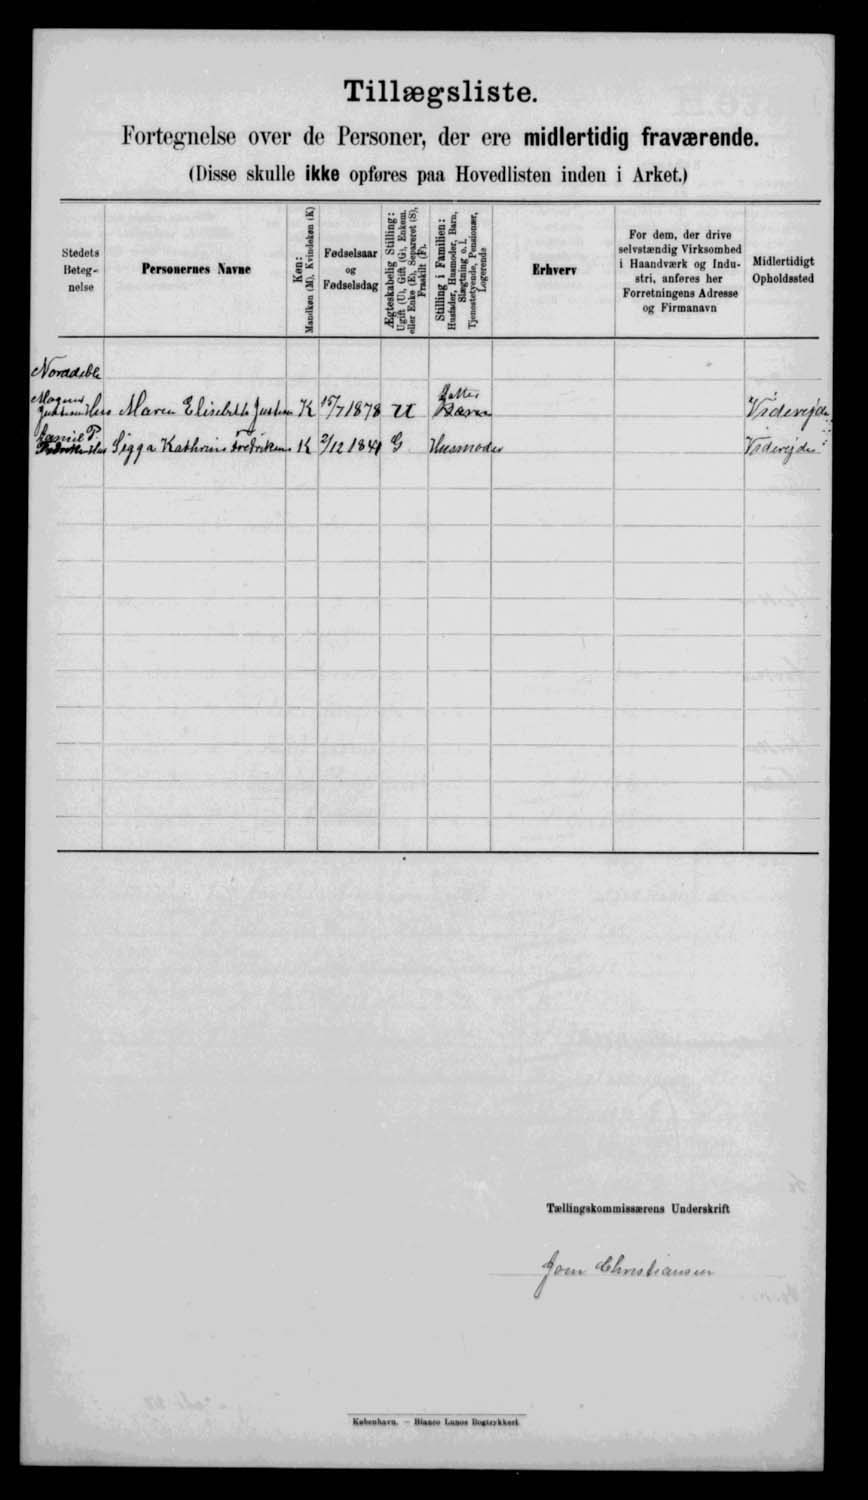 Tillægsliste.
Fortegnelse over de Personer, der ere midlertidig fraværende.
(Disse skulle ikke opføres paa Hovedlisten inden i Arket.)
Stedets
Beteg-
nelse
Personernes Navne
Køn:
Mandkøn (M), Kvindekøn (K)
Fødselsaar
og
Fødselsdag
Ægteskabelig Stilling:
Ugift (U), Gift (G), Enkem.
eller Enke (E), Separeret (S),
Fraskilt (F).
Stilling i Familien:
Husfader, Husmoder, Barn,
Slægtning o. l.
Tjenestetyende, Pensionær,
Logerende
Erhverv
For dem, der drive
selvstændig Virksomhed
i Haandværk og Indu-
stri, anføres her
Forretningens Adresse
og Firmanavn
Midlertidigt
Opholdssted
Norddeble
Magnus Justesens Hus Maren Elisebeth Justesen K 15/7 1878 U Datter Viderejde
Daniel P. Sigga Kathrine Fredriksen K 2/12 1841 G Husmoder Viderejde
Tællingskommissærens Underskrift
Joen Christiansen
København. — Bianco Lunos Bogtrykkeri